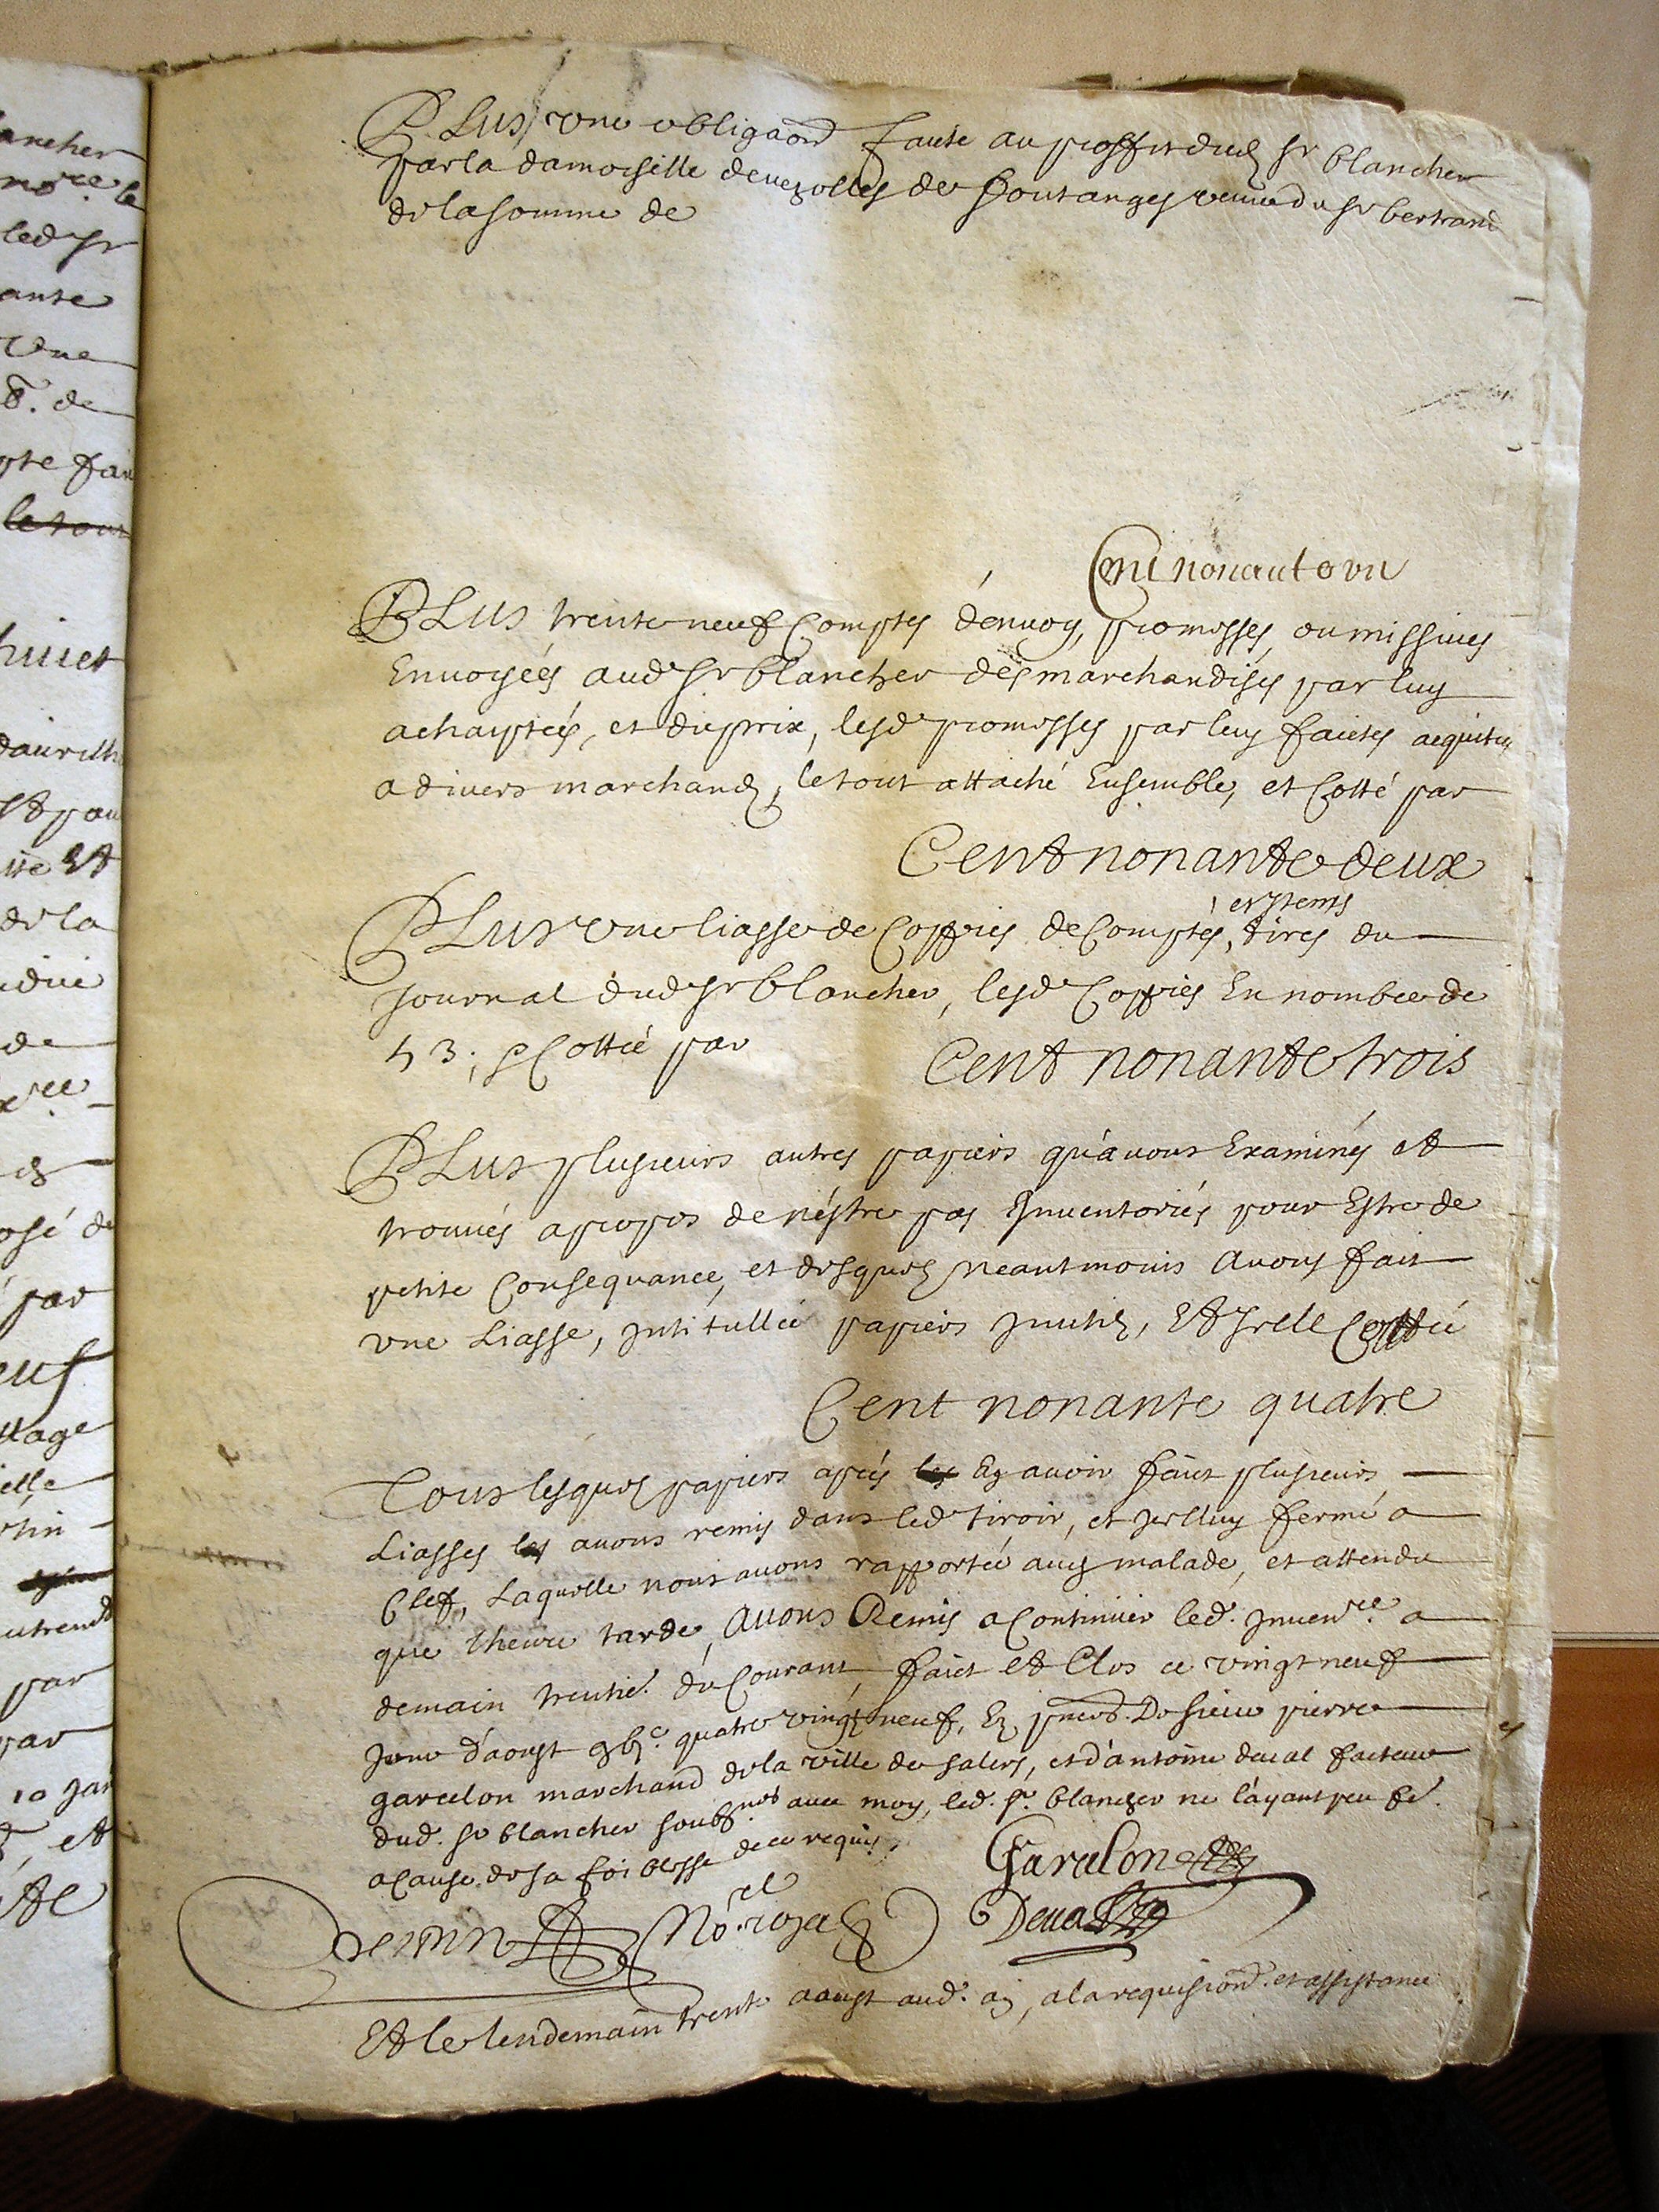 ancher
no.re le
led sr
ante
vne
de
pte fai
le tout
huict
daurilh
et
de la
de
osé de
par
euf
ttage
elle
par
par
10 jan
et
Plus vne obligaon faite au proffit dud sr blancher
par la damoiselle de vezolles de fontanges veuue du sr bertrand
de la somme de
Cent nonante vn
PLus trente neuf Comptes d'enuoy, promesses, ou missiues
Enuoyées aud sr blancher des marchandises par luy
achaptées, et du prix, lesd promesses par luy faictes acquitees
a divers marchandz, le tout attaché Ensemble, et Cotté par
Cent nonante deux
PLus vne liasse de Coppies de Comptes, et Items tires du
Journal dud sr blancher, lesd Coppies En nombre de
53; Cottée par
Cent nonante trois
PLus plusieurs autres papiers qu'auons Examinés et
trouués apropos de n'estre pas Inuentoriés pour Estre de
petite Consequance, et desquelz neantmoins auons fait
vne Liasse, intitullée papiers inutilz, Et Icelle Cottée
Cent nonante quatre
Tous lesquelz papiers apres les En auoir faict plusieurs
Liasses les auons remis dans led tiroir, et Icelluy fermé a
Clef, Laquelle nous auons rapportée aud malade, et attendu
que l'heure tarde, auons Remis a Continuer led. Inuen.re a
demain trentie. du Courant, faict et Clos ce vingt neuf
jour d'aoust quatre vingtz neuf, En pnces. De sieur pierre
garcelon marchand de la ville de salers, et d'antoine deual facteur
dud. sr blancher soubs.nes auec moy, led. sr. blancher ne l'ayant peu fe.
a Cause de sa foiblesse de ce requis,
Garcelon
Deual
No.re royal
Et le lendemain trente aoust aud. an, a la requision. et assistance